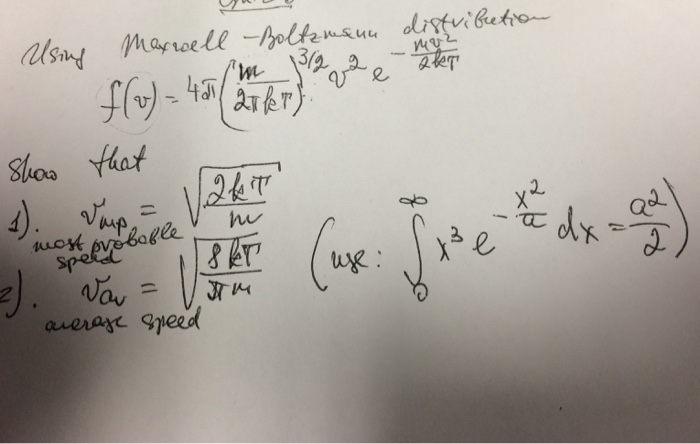 Using Maxwell-Boltzmann distribution
f(v) = 4π (m/2πkT)^3/2 v^2 e^-mv^2/2kT
Show that
1). v_mp = √(2kT/m)
most probable speed
2). v_av = √(8kT/πm)
average speed
(use: ∫_0^∞ x^3 e^-x^2/a dx = a^2/2)